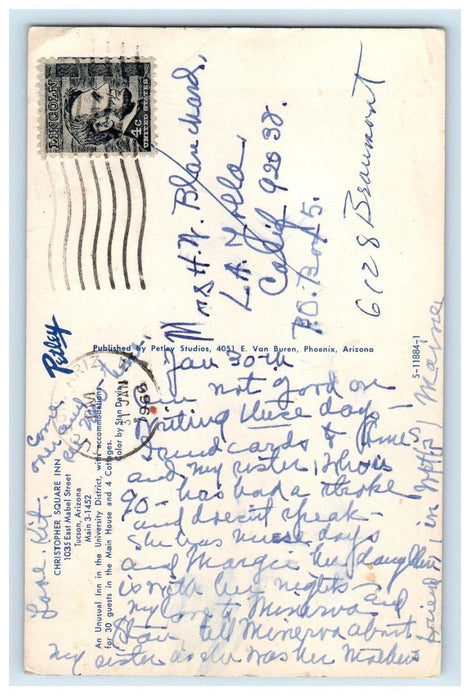 LINCOLN
4¢
UNITED STATES
ARIZ
PM
31 JAN
Mrs H. W. Blanchard,
La Jolla
Calif 92038.
P.O. Box 5.
6128 Beaumont
Petley
Published by Petley Studios, 4051 E. Van Buren, Phoenix, Arizona
S-11884-1
CHRISTOPHER SQUARE INN
1035 East Mabel Street
Tucson, Arizona
Main 3-1452
An Unusual Inn in the University District, with accommodations
for 30 guests in the Main House and 4 Cottages.
Color by Stan Davis
Jan 30th
am not good on
writing these days
send cards &
and my sister, who is
90 - has had a stroke
and doesn't speak -
She has nurse days
and Margie her daughter
is with her nights - and
my love to Minerva and
Stan tell Minerva about
my sister as she was her Mothers
friend in Maine
Love. Kit.
Come